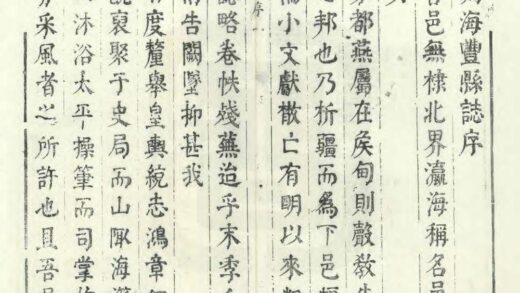 海豐縣誌序
邑無棣北界瀛海稱名邑
都燕屬在矦甸則聲敎
之邦也乃析疆而爲下邑
小文獻散亡有明以來
序
略卷帙殘蕪迨乎末季
告闕墜抑甚我
度釐舉皇輿統志鴻章
裒聚于史局而山陬海
沐浴太平操筆而司掌
采風者之所許也且吾